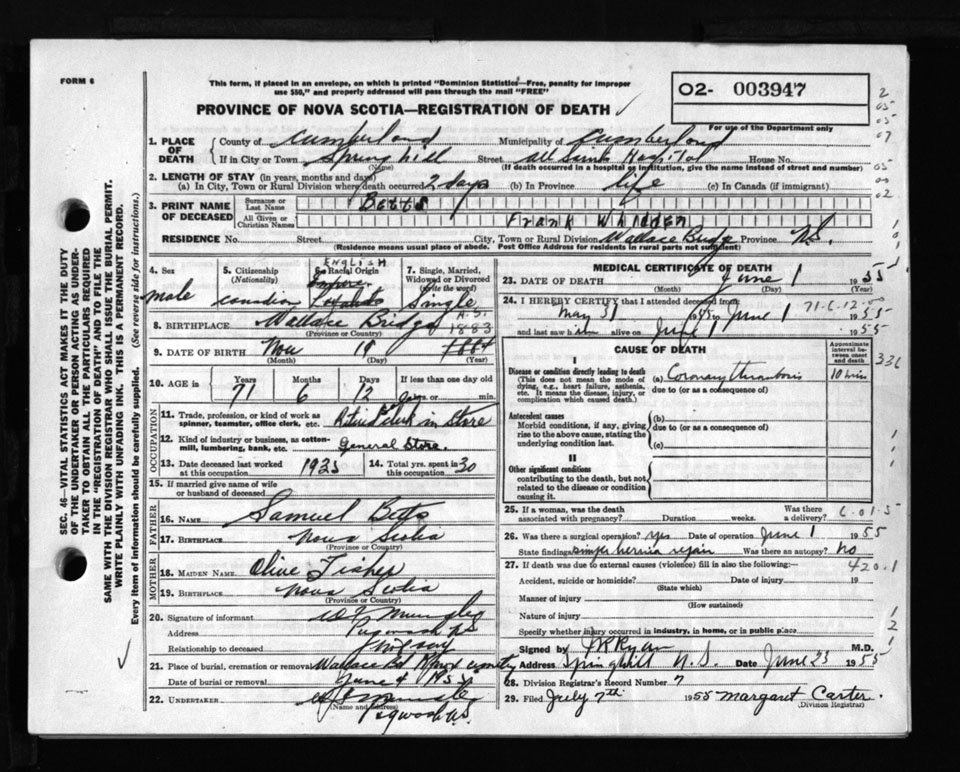 FORM 6
This form, if placed in an envelope, on which is printed "Dominion Statistics—Free, penalty for improper
use $50," and properly addressed will pass through the mail "FREE"
PROVINCE OF NOVA SCOTIA—REGISTRATION OF DEATH
O2- 003947
For use of the Department only
1. PLACE OF DEATH
County of Cumberland Municipality of Cumberland
If in City or Town Spring hill Street All Saints Hospital House No.
(Name) (If death occurred in a hospital or institution, give the name instead of street and number)
2. LENGTH OF STAY (in years, months and days)
(a) In City, Town or Rural Division where death occurred 2 days (b) In Province life (c) In Canada (if immigrant)
3. PRINT NAME OF DECEASED
Surname or Last Name Betts
All Given or Christian Names Frank Whidden
RESIDENCE No. Street City, Town or Rural Division Wallace Bridge Province N.S.
(Residence means usual place of abode. Post Office Address for residents in rural parts not sufficient)
4. Sex male
5. Citizenship (Nationality) canadian
6. Racial Origin ENGLISH
7. Single, Married, Widowed or Divorced (Write the word) Single
8. BIRTHPLACE Wallace Bridge N.S.
(Province or Country)
1883
9. DATE OF BIRTH Nov 19 1884
(Month) (Day) (Year)
10. AGE in Years 71 Months 6 Days 12 If less than one day old hrs. or min.
OCCUPATION
11. Trade, profession, or kind of work as spinner, teamster, office clerk, etc. Retired clerk in Store
12. Kind of industry or business, as cotton-mill, lumbering, bank, etc. General Store
13. Date deceased last worked at this occupation 1935 14. Total yrs. spent in this occupation 30
15. If married give name of wife or husband of deceased
FATHER
16. NAME Samuel Betts
17. BIRTHPLACE Nova Scotia
(Province or Country)
MOTHER
18. MAIDEN NAME Olive Fisher
19. BIRTHPLACE Nova Scotia
(Province or Country)
20. Signature of informant
Address Pugwash NS
Relationship to deceased
21. Place of burial, cremation or removal Wallace
Date of burial or removal June 4 1955
22. UNDERTAKER
(Name and Address)
Pugwash NS.
MEDICAL CERTIFICATE OF DEATH
23. DATE OF DEATH June 1 1955
(Month) (Day) (Year)
24. I HEREBY CERTIFY that I attended deceased from:
May 31 1955 to June 1 1955
and last saw him alive on June 1 1955
CAUSE OF DEATH
Approximate interval between onset and death
I
Disease or condition directly leading to death (a) Coronary thrombosis 10 mins
(This does not mean the mode of dying, e.g., heart failure, asthenia, etc. It means the disease, injury, or complication which caused death.)
due to (or as a consequence of)
Antecedent causes (b)
Morbid conditions, if any, giving rise to the above cause, stating the underlying condition last.
due to (or as a consequence of)
(c)
II
Other significant conditions
contributing to the death, but not related to the disease or condition causing it.
25. If a woman, was the death associated with pregnancy? Duration weeks. Was there a delivery?
26. Was there surgical operation? yes Date of operation June 1 1955
State findings simple hernia repair Was there an autopsy? no
27. If death was due to external causes (violence) fill in also the following:— 420.1
Accident, suicide or homicide? Date of injury 19
(State which)
Manner of injury
(How sustained)
Nature of injury
Specify whether injury occurred in industry, in home, or in public place
Signed by J R Ryan M.D.
Address Springhill N.S. Date June 23 1955
28. Division Registrar's Record Number 7
29. Filed July 7th 1955 Margaret Carter.
(Division Registrar)
SEC. 46—VITAL STATISTICS ACT MAKES IT THE DUTY
OF THE UNDERTAKER OR PERSON ACTING AS UNDER-
TAKER TO OBTAIN ALL THE PARTICULARS REQUIRED
IN THE "REGISTRATION OF DEATH" AND TO FILE THE
SAME WITH THE DIVISION REGISTRAR WHO SHALL ISSUE THE BURIAL PERMIT.
WRITE PLAINLY WITH UNFADING INK. THIS IS A PERMANENT RECORD.
Every item of information should be carefully supplied. (See reverse side for instructions.)
336